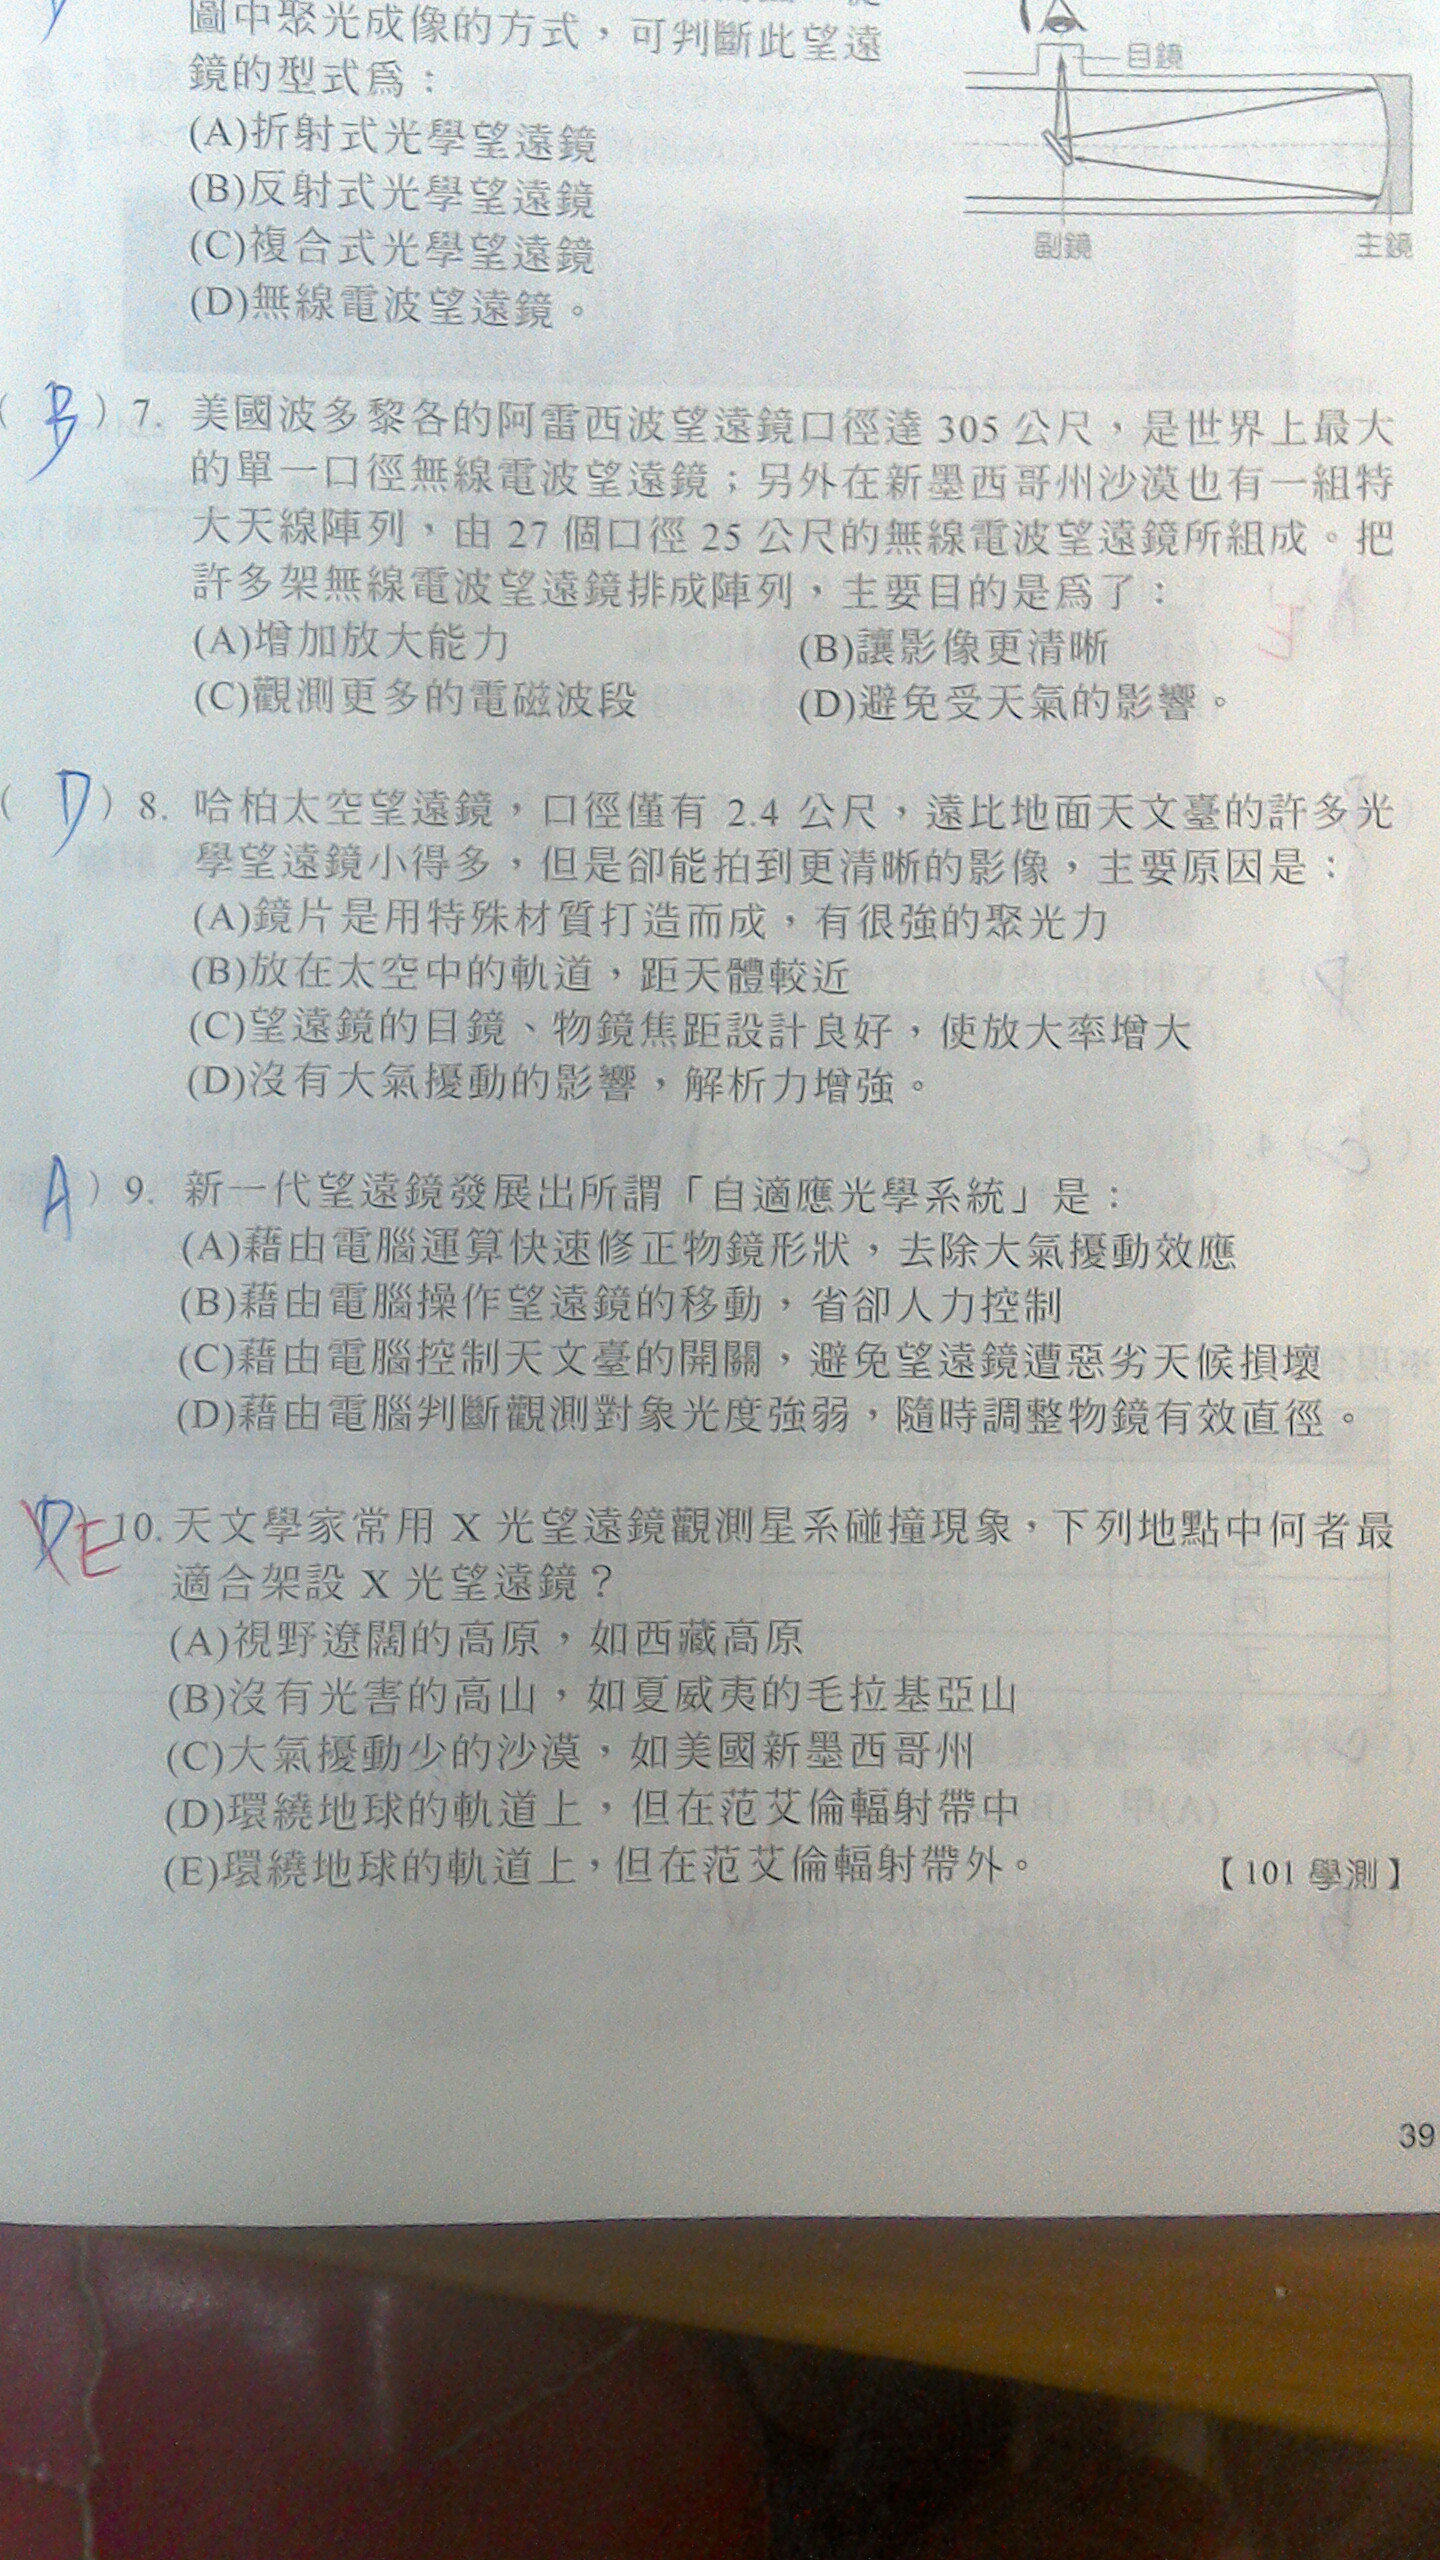 圖中聚光成像的方式，可判斷此望遠
鏡的型式為：
(A)折射式光學望遠鏡
(B)反射式光學望遠鏡
(C)複合式光學望遠鏡
(D)無線電波望遠鏡。
目鏡
副鏡
主鏡
(B)7. 美國波多黎各的阿雷西波望遠鏡口徑達 305 公尺，是世界上最大
的單一口徑無線電波望遠鏡；另外在新墨西哥州沙漠也有一組特
大天線陣列，由 27 個口徑 25 公尺的無線電波望遠鏡所組成。把
許多架無線電波望遠鏡排成陣列，主要目的是為了：
(A)增加放大能力 (B)讓影像更清晰
(C)觀測更多的電磁波段 (D)避免受天氣的影響。
(D)8. 哈柏太空望遠鏡，口徑僅有 2.4 公尺，遠比地面天文臺的許多光
學望遠鏡小得多，但是卻能拍到更清晰的影像，主要原因是：
(A)鏡片是用特殊材質打造而成，有很強的聚光力
(B)放在太空中的軌道，距天體較近
(C)望遠鏡的目鏡、物鏡焦距設計良好，使放大率增大
(D)沒有大氣擾動的影響，解析力增強。
A)9. 新一代望遠鏡發展出所謂「自適應光學系統」是：
(A)藉由電腦運算快速修正物鏡形狀，去除大氣擾動效應
(B)藉由電腦操作望遠鏡的移動，省卻人力控制
(C)藉由電腦控制天文臺的開關，避免望遠鏡遭惡劣天候損壞
(D)藉由電腦判斷觀測對象光度強弱，隨時調整物鏡有效直徑。
D)E 10. 天文學家常用 X 光望遠鏡觀測星系碰撞現象，下列地點中何者最
適合架設 X 光望遠鏡？
(A)視野遼闊的高原，如西藏高原
(B)沒有光害的高山，如夏威夷的毛拉基亞山
(C)大氣擾動少的沙漠，如美國新墨西哥州
(D)環繞地球的軌道上，但在范艾倫輻射帶中
(E)環繞地球的軌道上，但在范艾倫輻射帶外。 【101 學測】
39